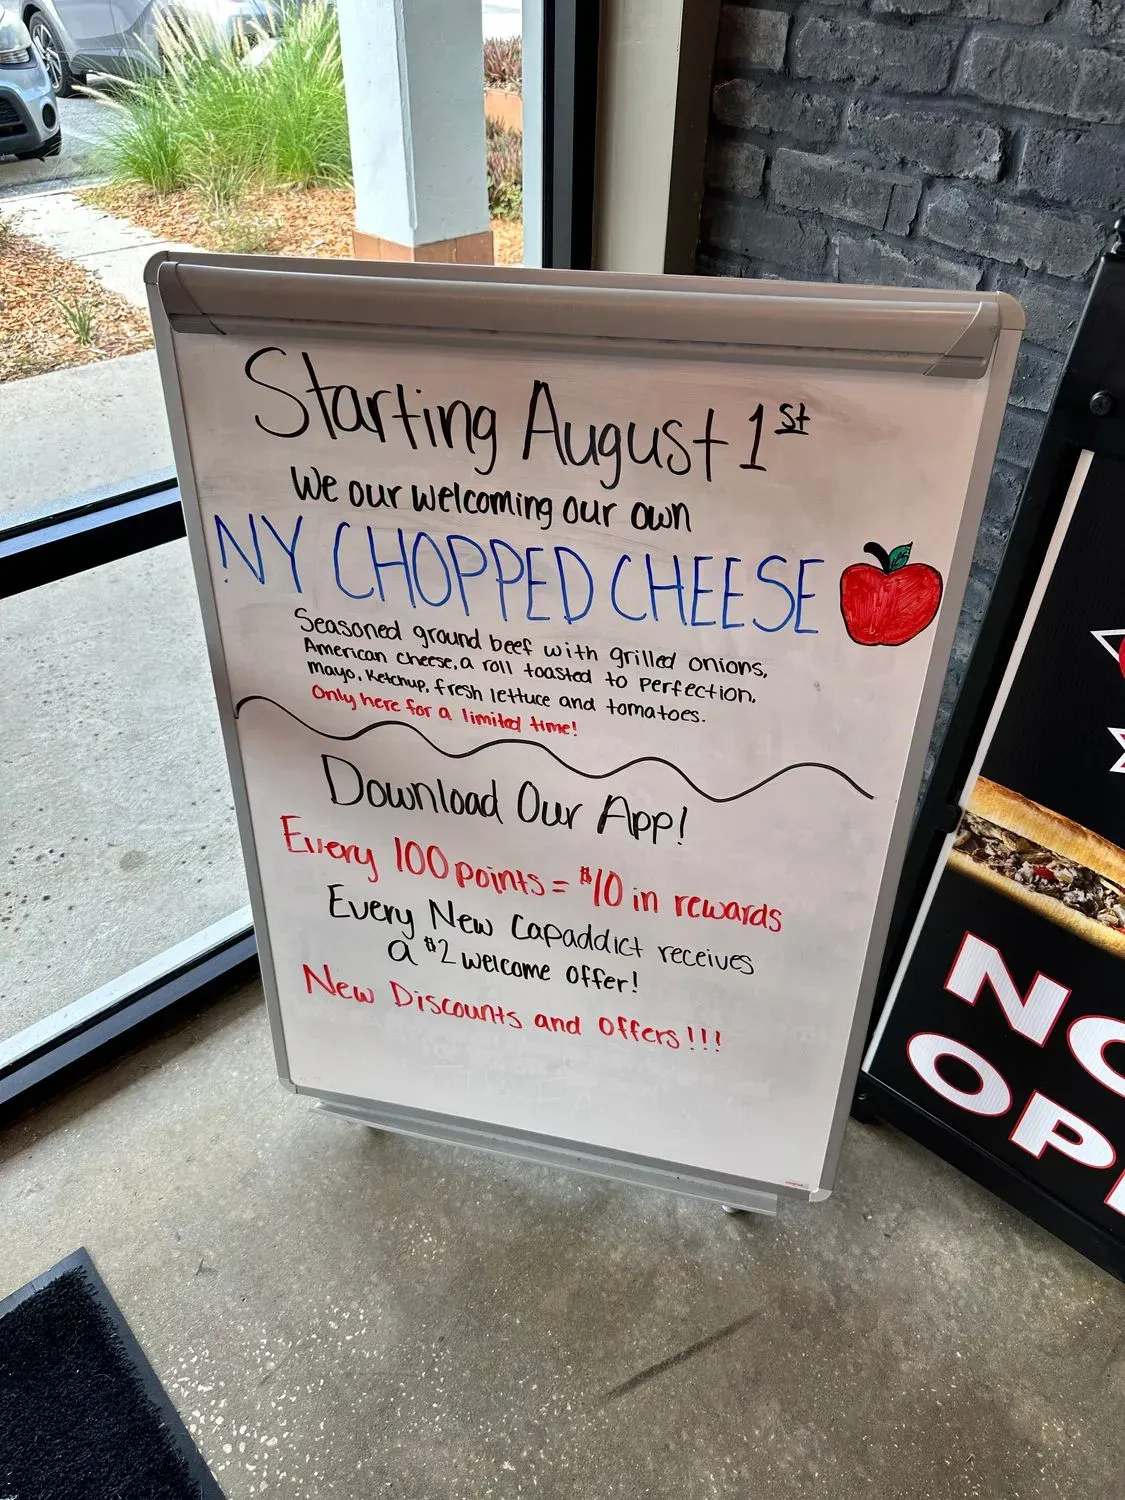 Starting August 1st
We our welcoming our own
NY CHOPPED CHEESE
Seasoned ground beef with grilled onions,
American cheese, a roll toasted to perfection,
mayo, ketchup, fresh lettuce and tomatoes.
Only here for a limited time!
Download Our App!
Every 100 points = $10 in rewards
Every New Capaddict receives
a $2 welcome offer!
New Discounts and offers!!!